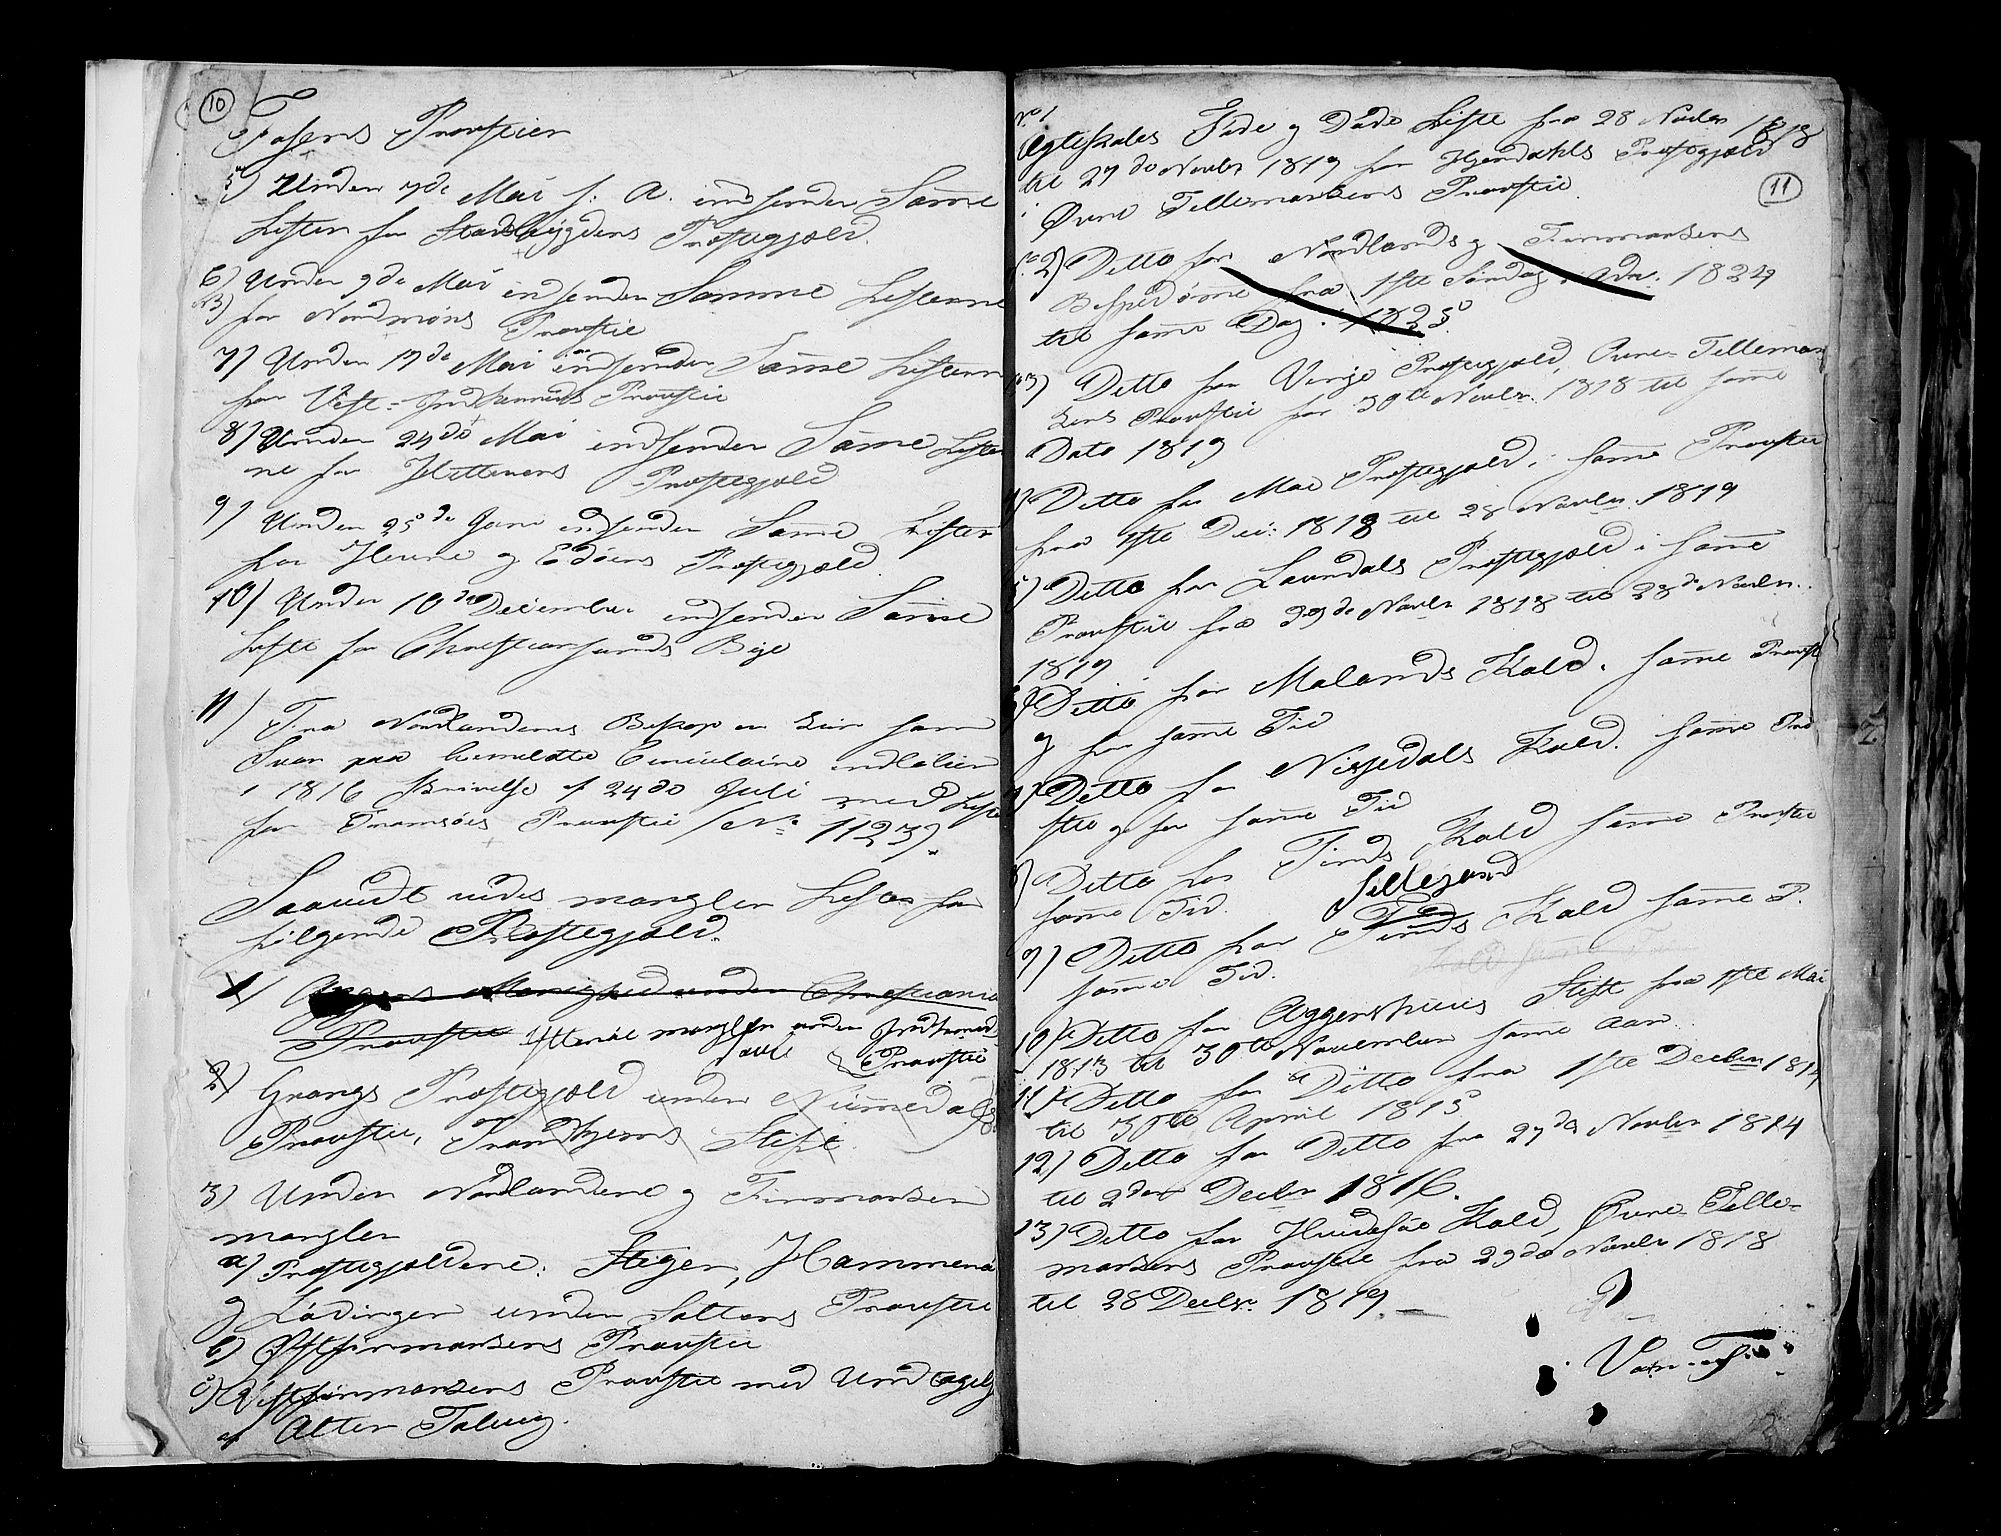 10
Fosens Provstier
5) Under 7de Mai s: A. indsender Samme
Lister for Stadsbygdens Præstegjæld.
6) Under 9de Mai indsender Samme Listerne
for Nordmörs Provstie
7) Under 17de Mai indsender Samme Listerne
for Vest-Indherreds Provstie
8) Under 24de Mai indsender Samme Lister
ne for Hitterens Præstegjæld
9) Under 25de Juni indsender Samme Lister
for Hevne og Edöens Præstegjæld
10) Under 10de December indsender Samme
Liste for Christiansunds Bye
11) Fra Nordlandenes Biskop er kun som
Svar paa bemeldte Circulaire indløben
i 1816 Skrivelse af 24de Juli med Liste
for Tromsöes Provstie (No 1123).
Saavidt vides mangler Lister for
følgende Præstegjæld.
1) Menighed under Christiania
Provstie Listerne mangler under Indherreds
Provstie
2) Grongs Præstegjæld under Nummedals
Provstie, Trondhjems Stift.
3) Under Nordlandene og Finmarken
mangler
a) Præstegjeldene: Stegen, Hammerö
og Lödingen under Saltens Provstie
b) Östfinmarkens Provstie
c) Vestfinmarkens Provstie med Undtagelse
af Alten Talvig.
No 1
Ægteskabs Føde og Døds Liste fra 28 Novbr 1818
til 27de Novbr 1819 for Hjerdahls Præstegjæld
i Övre Tellemarkens Provstie.
11
2) Ditto for Nordlands og Finmarkens
Bispedömme fra 1ste Søndag i Adv. 1824
til samme Dag 1825.
3) Ditto for Vinje Præstegjæld, Övre-Tellemar
kens Provstie for 30te Novbr. 1818 til samme
Dato 1819
4) Ditto for Moe Præstegjæld, i samme Provstie
fra 1ste Dec: 1818 til 28 Novbr. 1819
5) Ditto for Laurdals Præstegjæld i samme
Provstie fra 29de Novbr 1818 til 28de Novbr.
1819
6) Ditto for Molands Kald. samme Provst
og for samme Tid
7) Ditto for Nissedals Kald. samme Pro
stie og for samme Tid
8) Ditto for Tinds Kald samme Provstie
samme Tid. Sillejord
9) Ditto for Tinds Kald samme P.
samme Tid.
10) Ditto for Aggershuus Stift fra 1ste Mai
1813 til 30te November samme Aar.
11) Ditto for Ditto fra 1ste Decbr 1814
til 30te April 1815
12) Ditto for Ditto fra 27de Novbr 1814
til 2den Decbr 1816.
13) Ditto for Hvidesöe Kald, Övre-Telle-
markens Provstie fra 29de Novbr 1818
til 28 Decbr. 1819.